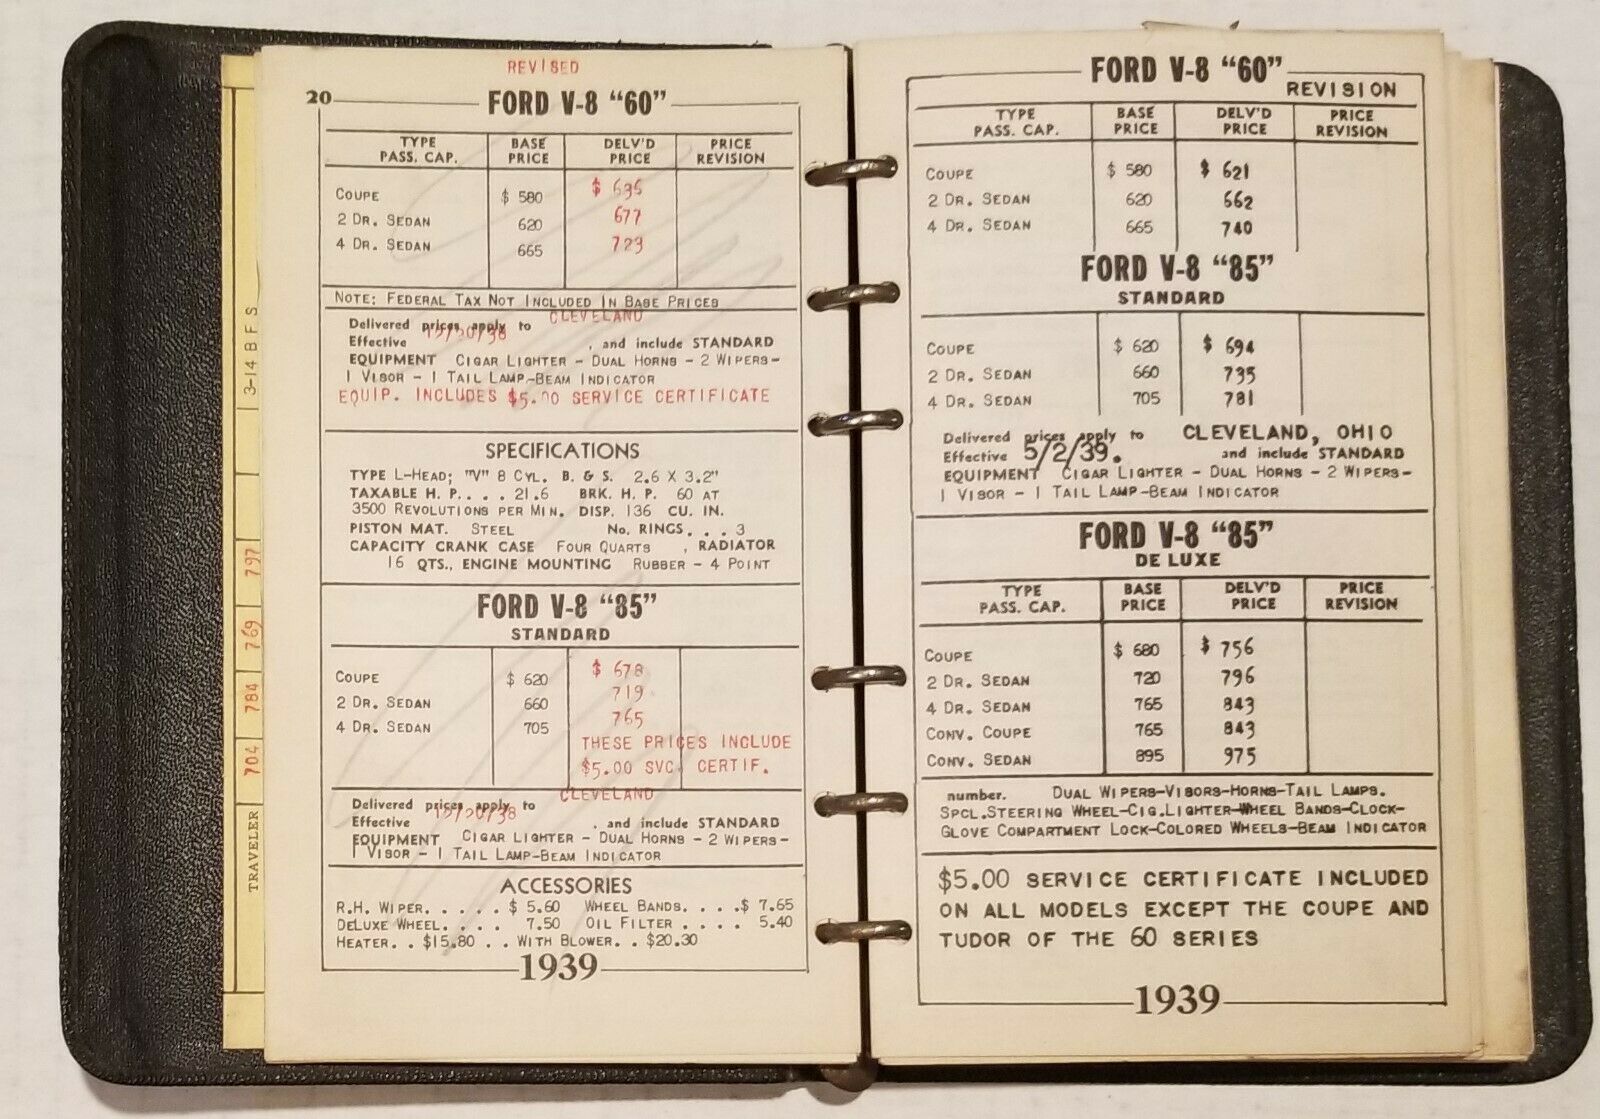 3-14 B F S
797
769
784
704
TRAVELER
REVISED
20
FORD V-8 "60"
TYPE PASS. CAP. BASE PRICE DELV'D PRICE PRICE REVISION
COUPE $ 580 $ 635
2 DR. SEDAN 620 677
4 DR. SEDAN 665 723
NOTE: FEDERAL TAX NOT INCLUDED IN BASE PRICES
Delivered prices apply to CLEVELAND
Effective 12/30/38, and include STANDARD
EQUIPMENT CIGAR LIGHTER - DUAL HORNS - 2 WIPERS-
1 VISOR - 1 TAIL LAMP-BEAM INDICATOR
EQUIP. INCLUDES $5.00 SERVICE CERTIFICATE
SPECIFICATIONS
TYPE L-HEAD; "V" 8 CYL. B. & S. 2.6 X 3.2"
TAXABLE H. P. . . . 21.6 BRK. H. P. 60 AT
3500 REVOLUTIONS PER MIN. DISP. 136 CU. IN.
PISTON MAT. STEEL No. RINGS. . . 3
CAPACITY CRANK CASE FOUR QUARTS , RADIATOR
16 QTS., ENGINE MOUNTING RUBBER - 4 POINT
FORD V-8 "85"
STANDARD
COUPE $ 620 $ 678
2 DR. SEDAN 660 719
4 DR. SEDAN 705 765
THESE PRICES INCLUDE
$5.00 SVC. CERTIF.
Delivered prices apply to CLEVELAND
Effective 12/30/38, and include STANDARD
EQUIPMENT CIGAR LIGHTER - DUAL HORNS - 2 WIPERS-
1 VISOR - 1 TAIL LAMP-BEAM INDICATOR
ACCESSORIES
R.H. WIPER. . . . . $ 5.60 WHEEL BANDS. . . .$ 7.65
DELUXE WHEEL. . . . 7.50 OIL FILTER . . . . 5.40
HEATER. . $15.80 . . WITH BLOWER. . $20.30
1939
FORD V-8 "60"
REVISION
TYPE PASS. CAP. BASE PRICE DELV'D PRICE PRICE REVISION
COUPE $ 580 $ 621
2 DR. SEDAN 620 662
4 DR. SEDAN 665 740
FORD V-8 "85"
STANDARD
COUPE $ 620 $ 694
2 DR. SEDAN 660 735
4 DR. SEDAN 705 781
Delivered prices apply to CLEVELAND, OHIO
Effective 5/2/39. and include STANDARD
EQUIPMENT CIGAR LIGHTER - DUAL HORNS - 2 WIPERS-
1 VISOR - 1 TAIL LAMP-BEAM INDICATOR
FORD V-8 "85"
DE LUXE
TYPE PASS. CAP. BASE PRICE DELV'D PRICE PRICE REVISION
COUPE $ 680 $ 756
2 DR. SEDAN 720 796
4 DR. SEDAN 765 843
CONV. COUPE 765 843
CONV. SEDAN 895 975
number. DUAL WIPERS-VISORS-HORNS-TAIL LAMPS.
SPCL.STEERING WHEEL-CIG.LIGHTER-WHEEL BANDS-CLOCK-
GLOVE COMPARTMENT LOCK-COLORED WHEELS-BEAM INDICATOR
$5.00 SERVICE CERTIFICATE INCLUDED
ON ALL MODELS EXCEPT THE COUPE AND
TUDOR OF THE 60 SERIES
1939